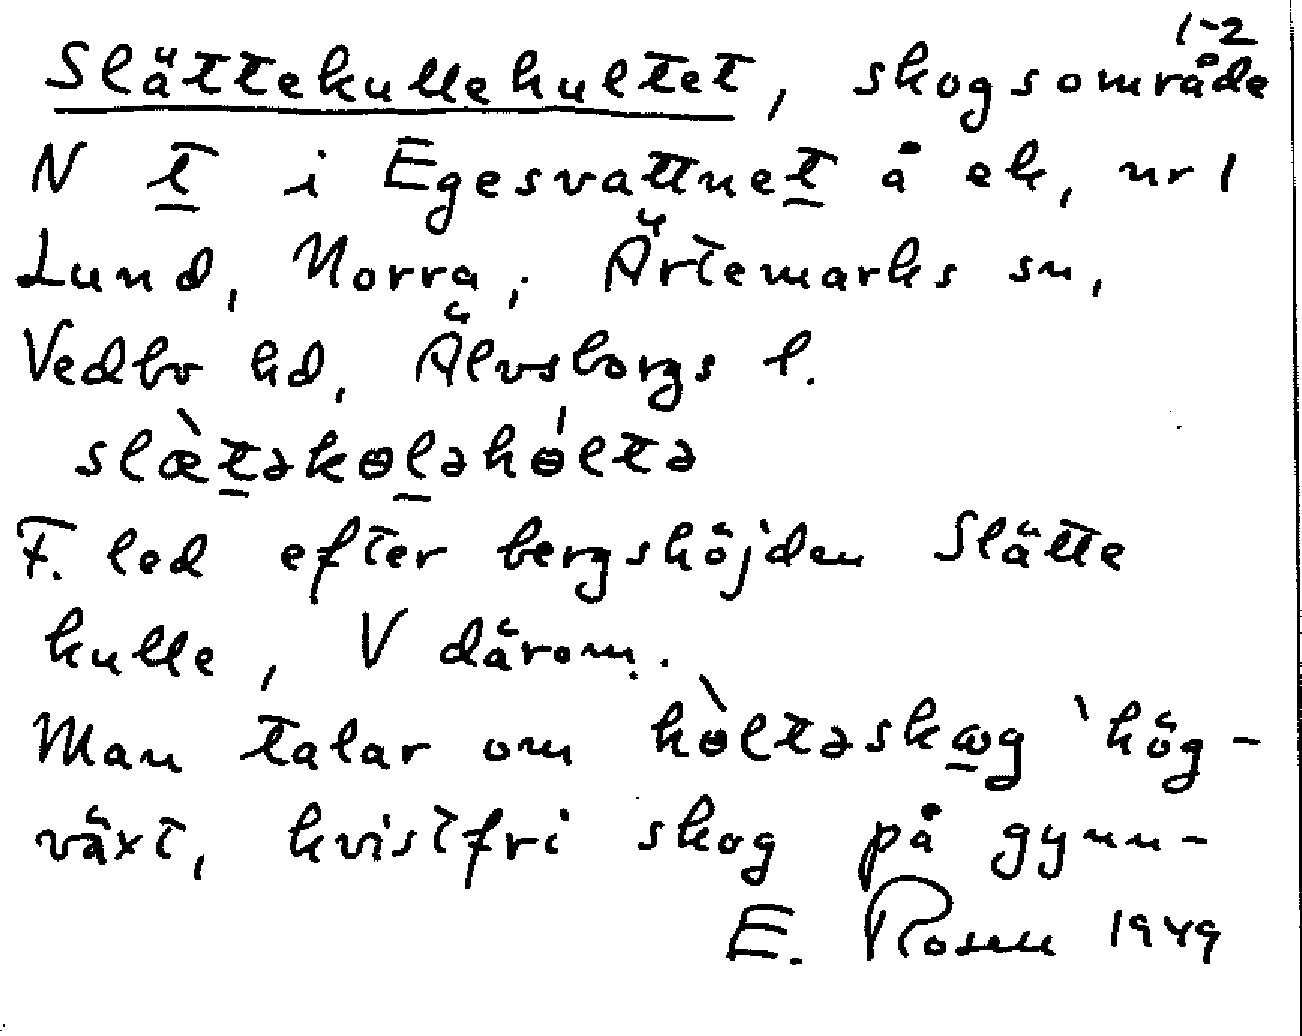 1-2
Slättekullehultet, skogsområde
N t i Egesvattnet å ek, nr 1
Lund, Norra, Ärtemarks sn,
Vedbo hd, Älvsborgs l.
slæ̀təkɵləhɵ́ltə
F. led efter bergshöjden Slätte
kulle, V därom.
Man talar om hɵ̀ltəskωg 'hög-
växt, kvistfri skog på gynn-
E. Rosell 1949